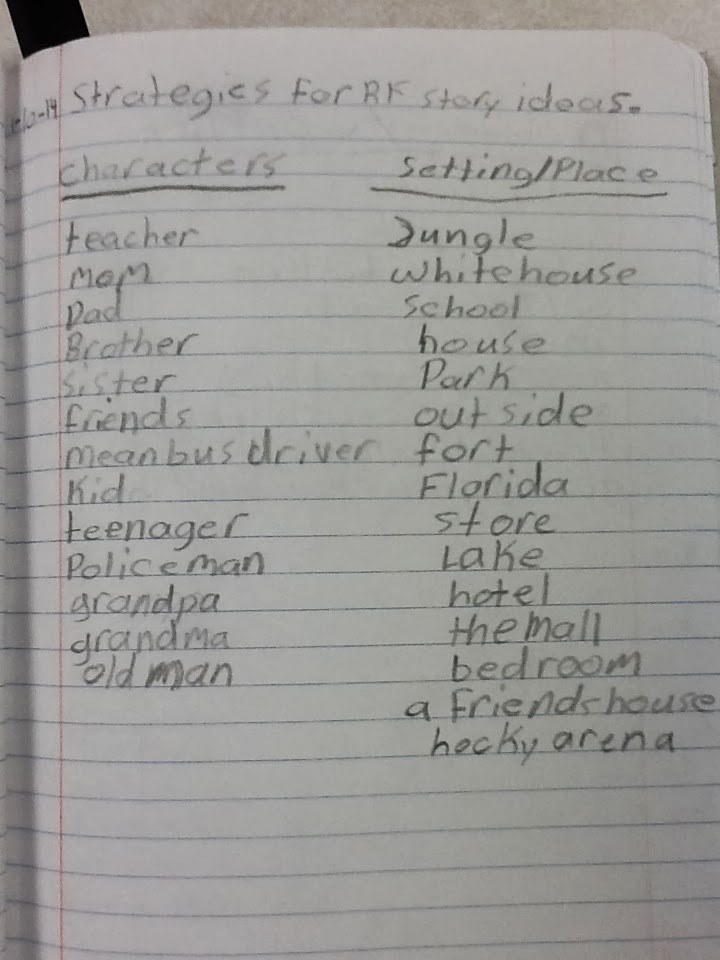 Strategies for RF story ideas.
Characters Setting/Place
teacher Jungle
Mom whitehouse
Dad school
Brother house
Sister Park
friends outside
mean bus driver fort
Kid Florida
teenager store
Policeman Lake
grandpa hotel
grandma the Mall
old man bedroom
a friends house
hocky arena